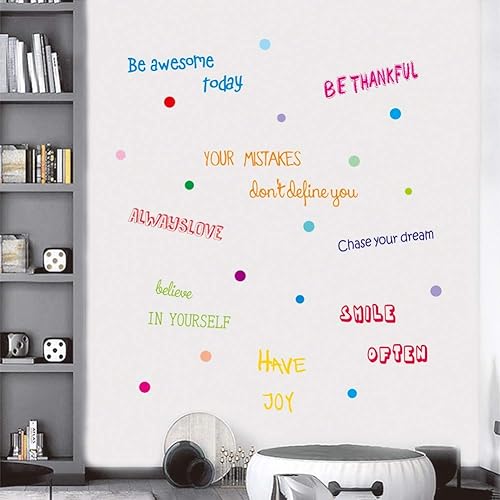 Be awesome
today
BE THANKFUL
YOUR MISTAKES
don't define you
ALWAYSLOVE
Chase your dream
believe
IN YOURSELF
SMILE
OFTEN
HAVE
JOY